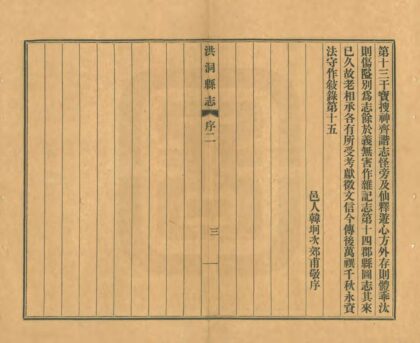 第十三干寶搜神齊諧志怪旁及仙釋遊心方外存則體乖汰
則傷隘別爲志餘於義無害作雜記志第十四郡縣圖志其來
已久故老相承各有所受考獻徵文信今傳後萬禩千秋永資
法守作敍錄第十五
邑人韓坰次郊甫敬序
洪洞縣志
序二
三
一